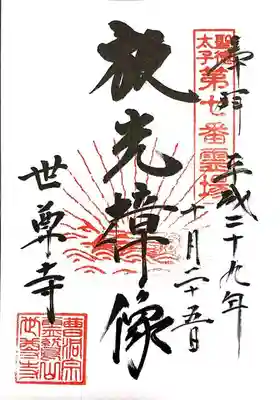 奉拝
平成二十九年
十月二十五日
聖徳
太子
第七番霊場
放光樟像
世尊寺
曹洞宗
霊鷲山
世尊寺